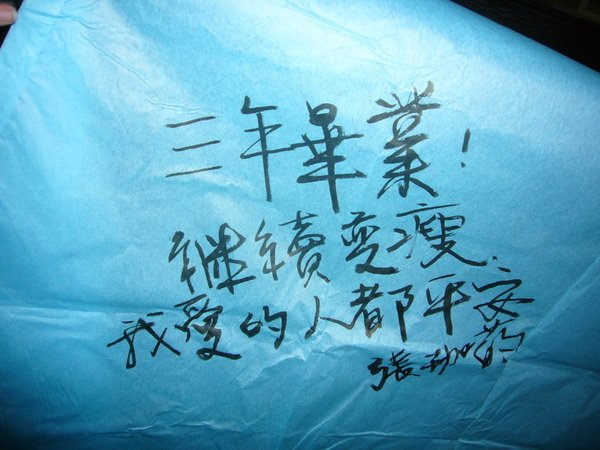 三年畢業!
継續變瘦.
我愛的人都平安
張